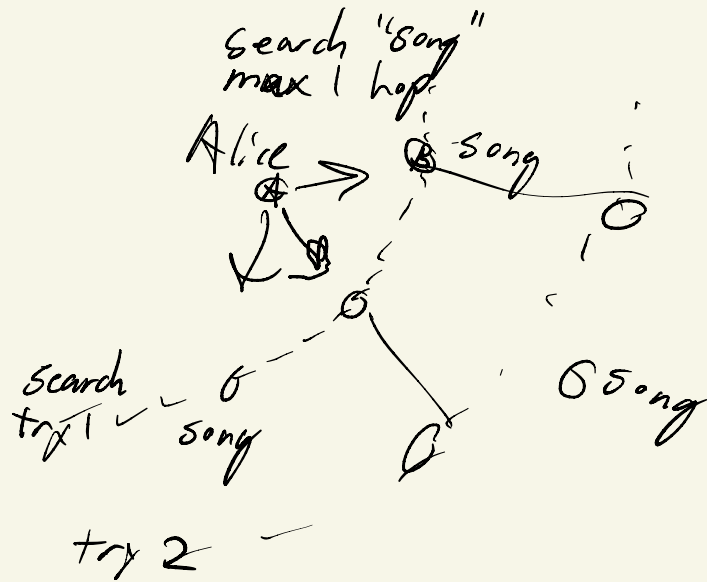 search "song"
max 1 hop
Alice
A
B song
search
try 1
song
song
try 2